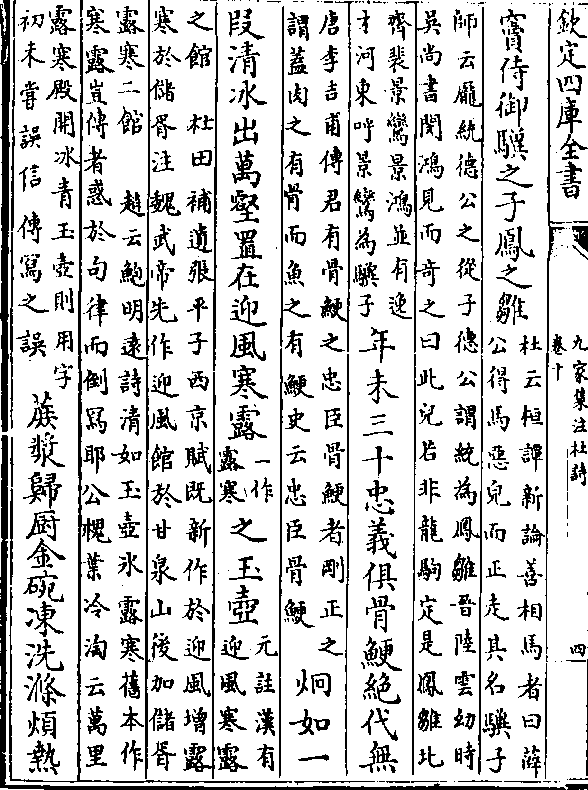 欽定四庫全書
九家集注杜詩
卷十
四
竇侍御驥之子鳳之雛
杜云桓譚新論善相馬者曰薛
公得馬惡兒而正走其名驥子
師云龐統德公之從子德公謂統為鳳雛晉陸雲幼時
吳尚書閔鴻見而奇之曰此兒若非龍駒定是鳳雛北
齊裴景鸞景鴻並有逸
才河東呼景鸞為驥子
年未三十忠義俱骨鯁絕代無
唐李吉甫傳君有骨鯁之忠臣骨鯁者剛正之
謂蓋肉之有骨而魚之有鯁史云忠臣骨鯁
炯如一
段清冰出萬壑置在迎風寒露
一作
露寒
之玉壺
元註漢有
迎風寒露
之館 杜田補遺張平子西京賦既新作於迎風增露
寒於儲胥注魏武帝先作迎風館於甘泉山後加儲胥
露寒二館 趙云鮑明遠詩清如玉壺氷露寒舊本作
寒露豈傳者惑於句律而倒寫耶公槐葉冷淘云萬里
露寒殿開冰青玉壺則用字
初未嘗誤信傳寫之誤
蔗漿歸厨金碗凍洗滌煩熱